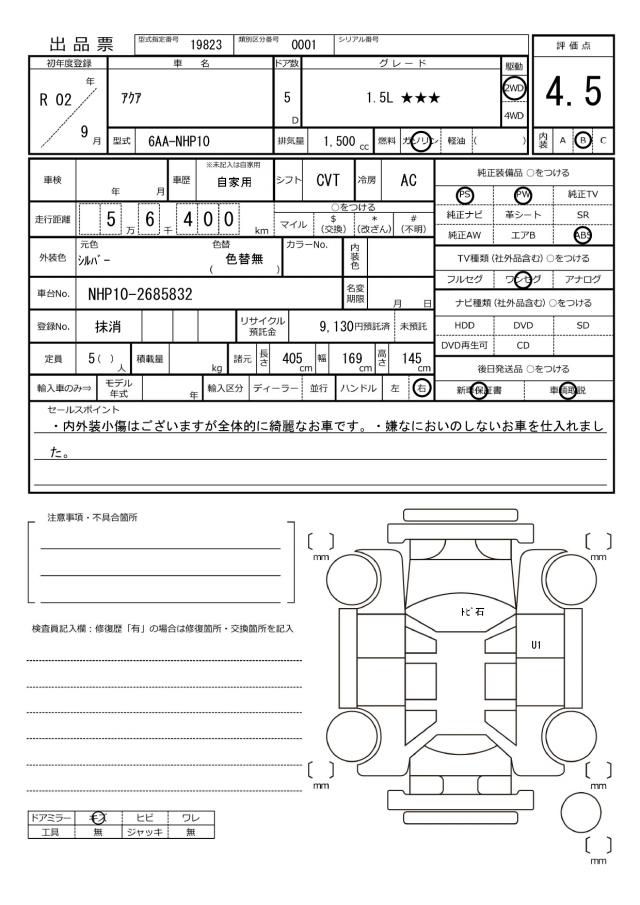 出品票 型式指定番号 19823 類別区分番号 0001 シリアル番号
評価点
4.5
初年度登録 車名 ドア数 グレード 駆動
R 02 年 9 月
ｱｸｱ
5 D
1.5L ★★★
2WD
4WD
型式 6AA-NHP10 排気量 1,500 cc 燃料 ガソリン 軽油 ( )
内装 A B C
車検 年 月 車歴 ※未記入は自家用 自家用 シフト CVT 冷房 AC
走行距離 5 万 6 千 4 0 0 km
○をつける
マイル $ (交換) * (改ざん) # (不明)
外装色 元色 ｼﾙﾊﾞｰ 色替 ( 色替無 ) カラーNo. 内装色
車台No. NHP10-2685832 名変期限 月 日
登録No. 抹消 リサイクル預託金 9,130円預託済 未預託
定員 5( ) 人 積載量 kg 諸元 長さ 405 cm 幅 169 cm 高さ 145 cm
輸入車のみ⇒ モデル年式 年 輸入区分 ディーラー 並行 ハンドル 左 右
純正装備品 ○をつける
PS PW 純正TV
純正ナビ 革シート SR
純正AW エアB ABS
TV種類 (社外品含む) ○をつける
フルセグ ワンセグ アナログ
ナビ種類 (社外品含む) ○をつける
HDD DVD SD
DVD再生可 CD
後日発送品 ○をつける
新車保証書 車輌取説
セールスポイント
・内外装小傷はございますが全体的に綺麗なお車です。・嫌なにおいのしないお車を仕入れまし
た。
注意事項・不具合箇所
検査員記入欄：修復歴「有」の場合は修復箇所・交換箇所を記入
〔 〕 mm
〔 〕 mm
ﾄﾋﾞ石
U1
〔 〕 mm
〔 〕 mm
〔 〕 mm
ドアミラー キズ ヒビ ワレ
工具 無 ジャッキ 無